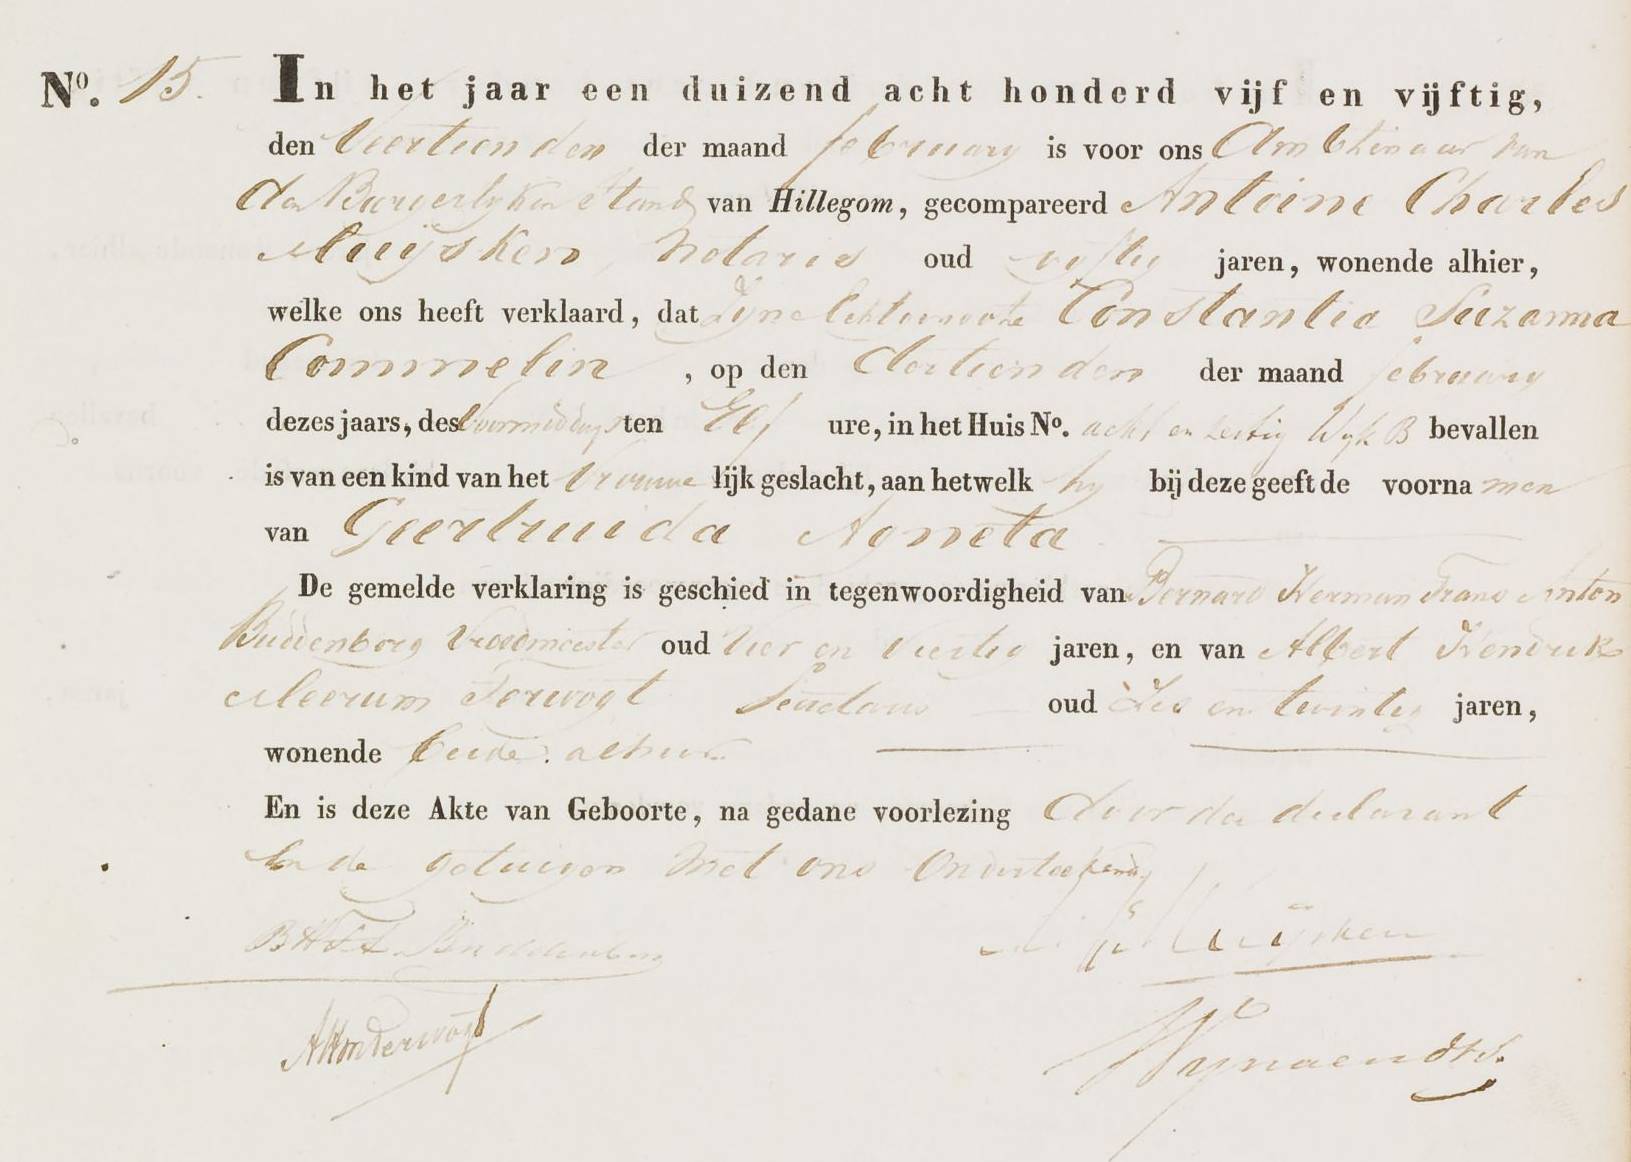 No. 15. In het jaar een duizend acht honderd vijf en vijftig,
den Veertienden der maand february is voor ons Ambtenaar van
den Burgerlyken Stand van Hillegom, gecompareerd Antoine Charles
Muijsken, Notaris oud vijftig jaren, wonende alhier,
welke ons heeft verklaard, dat Zyne Echtgenoote Constantia Suzanna
Commelin, op den dertienden der maand february
dezes jaars, des Voormiddags ten Elf ure, in het Huis No. acht en zestig Wyk B bevallen
is van een kind van het Vrouwe lijk geslacht, aan hetwelk hy bij deze geeft de voorna men
van Geertruida Agneta
De gemelde verklaring is geschied in tegenwoordigheid van Bernard Herman Frans Anton
Buddenborg Vroedmeester oud Vier en Veertig jaren, en van Albert Hendrik
Meerum Terwogt oud Zes en twintig jaren,
wonende beide alhier.
En is deze Akte van Geboorte, na gedane voorlezing door den declarant
En de getuigen met ons Onderteekend,
BHFA Buddenborg Muijsken